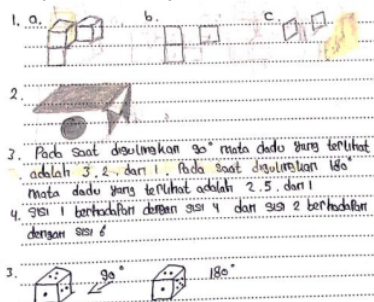 1. a. b. c.
2.
3. Pada saat digulingkan 90° mata dadu yang terlihat
adalah 3, 2, dan 1. Pada saat digulingkan 180°
mata dadu yang terlihat adalah 2, 5, dan 1
4. sisi 1 berhadapan dengan sisi 4 dan sisi 2 berhadapan
dengan sisi 6
3. 90° 180°